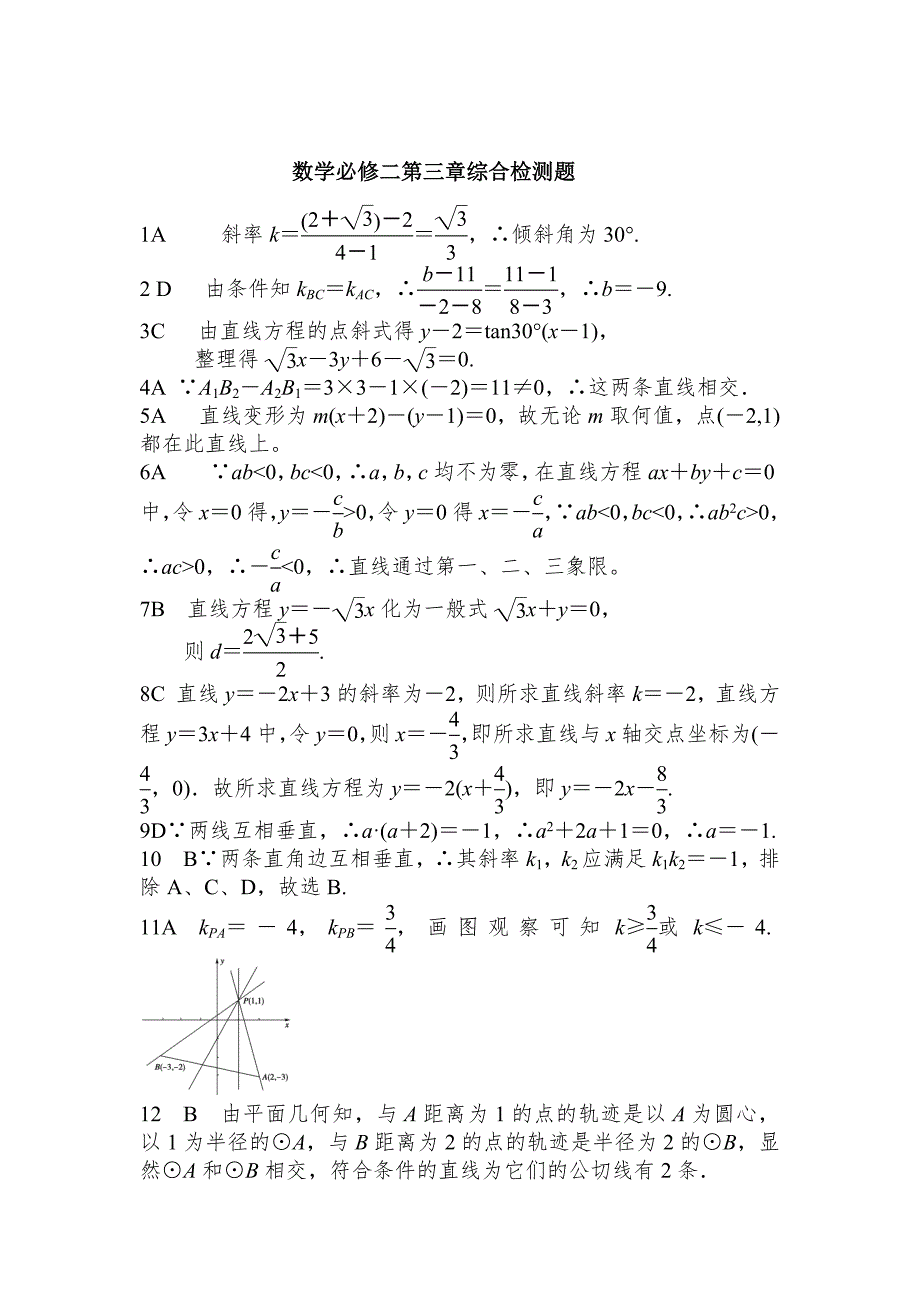 数学必修二第三章综合检测题
1A 斜率 k＝((2＋√3)－2)/(4－1)＝√3/3，∴倾斜角为 30°.
2 D 由条件知 kBC＝kAC，∴(b－11)/(－2－8)＝(11－1)/(8－3)，∴b＝－9.
3C 由直线方程的点斜式得 y－2＝tan30°(x－1)，
整理得 √3x－3y＋6－√3＝0.
4A ∵A₁B₂－A₂B₁＝3×3－1×(－2)＝11≠0，∴这两条直线相交．
5A 直线变形为 m(x＋2)－(y－1)＝0，故无论 m 取何值，点(－2,1)
都在此直线上。
6A ∵ab<0, bc<0, ∴a, b, c 均不为零，在直线方程 ax＋by＋c＝0
中，令 x＝0 得，y＝－c/b>0，令 y＝0 得 x＝－c/a，∵ab<0, bc<0, ∴ab²c>0，
∴ac>0，∴－c/a<0，∴直线通过第一、二、三象限。
7B 直线方程 y＝－√3x 化为一般式 √3x＋y＝0，
则 d＝(2√3＋5)/2.
8C 直线 y＝－2x＋3 的斜率为－2，则所求直线斜率 k＝－2，直线方
程 y＝3x＋4 中，令 y＝0，则 x＝－4/3，即所求直线与 x 轴交点坐标为(－
4/3，0)．故所求直线方程为 y＝－2(x＋4/3)，即 y＝－2x－8/3.
9D∵两线互相垂直，∴a·(a＋2)＝－1，∴a²＋2a＋1＝0，∴a＝－1.
10 B∵两条直角边互相垂直，∴其斜率 k₁，k₂应满足 k₁k₂＝－1，排
除 A、C、D，故选 B.
11A kPA＝－4，kPB＝3/4，画图观察可知 k≥3/4或 k≤－4.
y
P(1,1)
x
B(－3,－2)
A(2,－3)
12 B 由平面几何知，与 A 距离为 1 的点的轨迹是以 A 为圆心，
以 1 为半径的⊙A，与 B 距离为 2 的点的轨迹是半径为 2 的⊙B，显
然⊙A 和⊙B 相交，符合条件的直线为它们的公切线有 2 条．